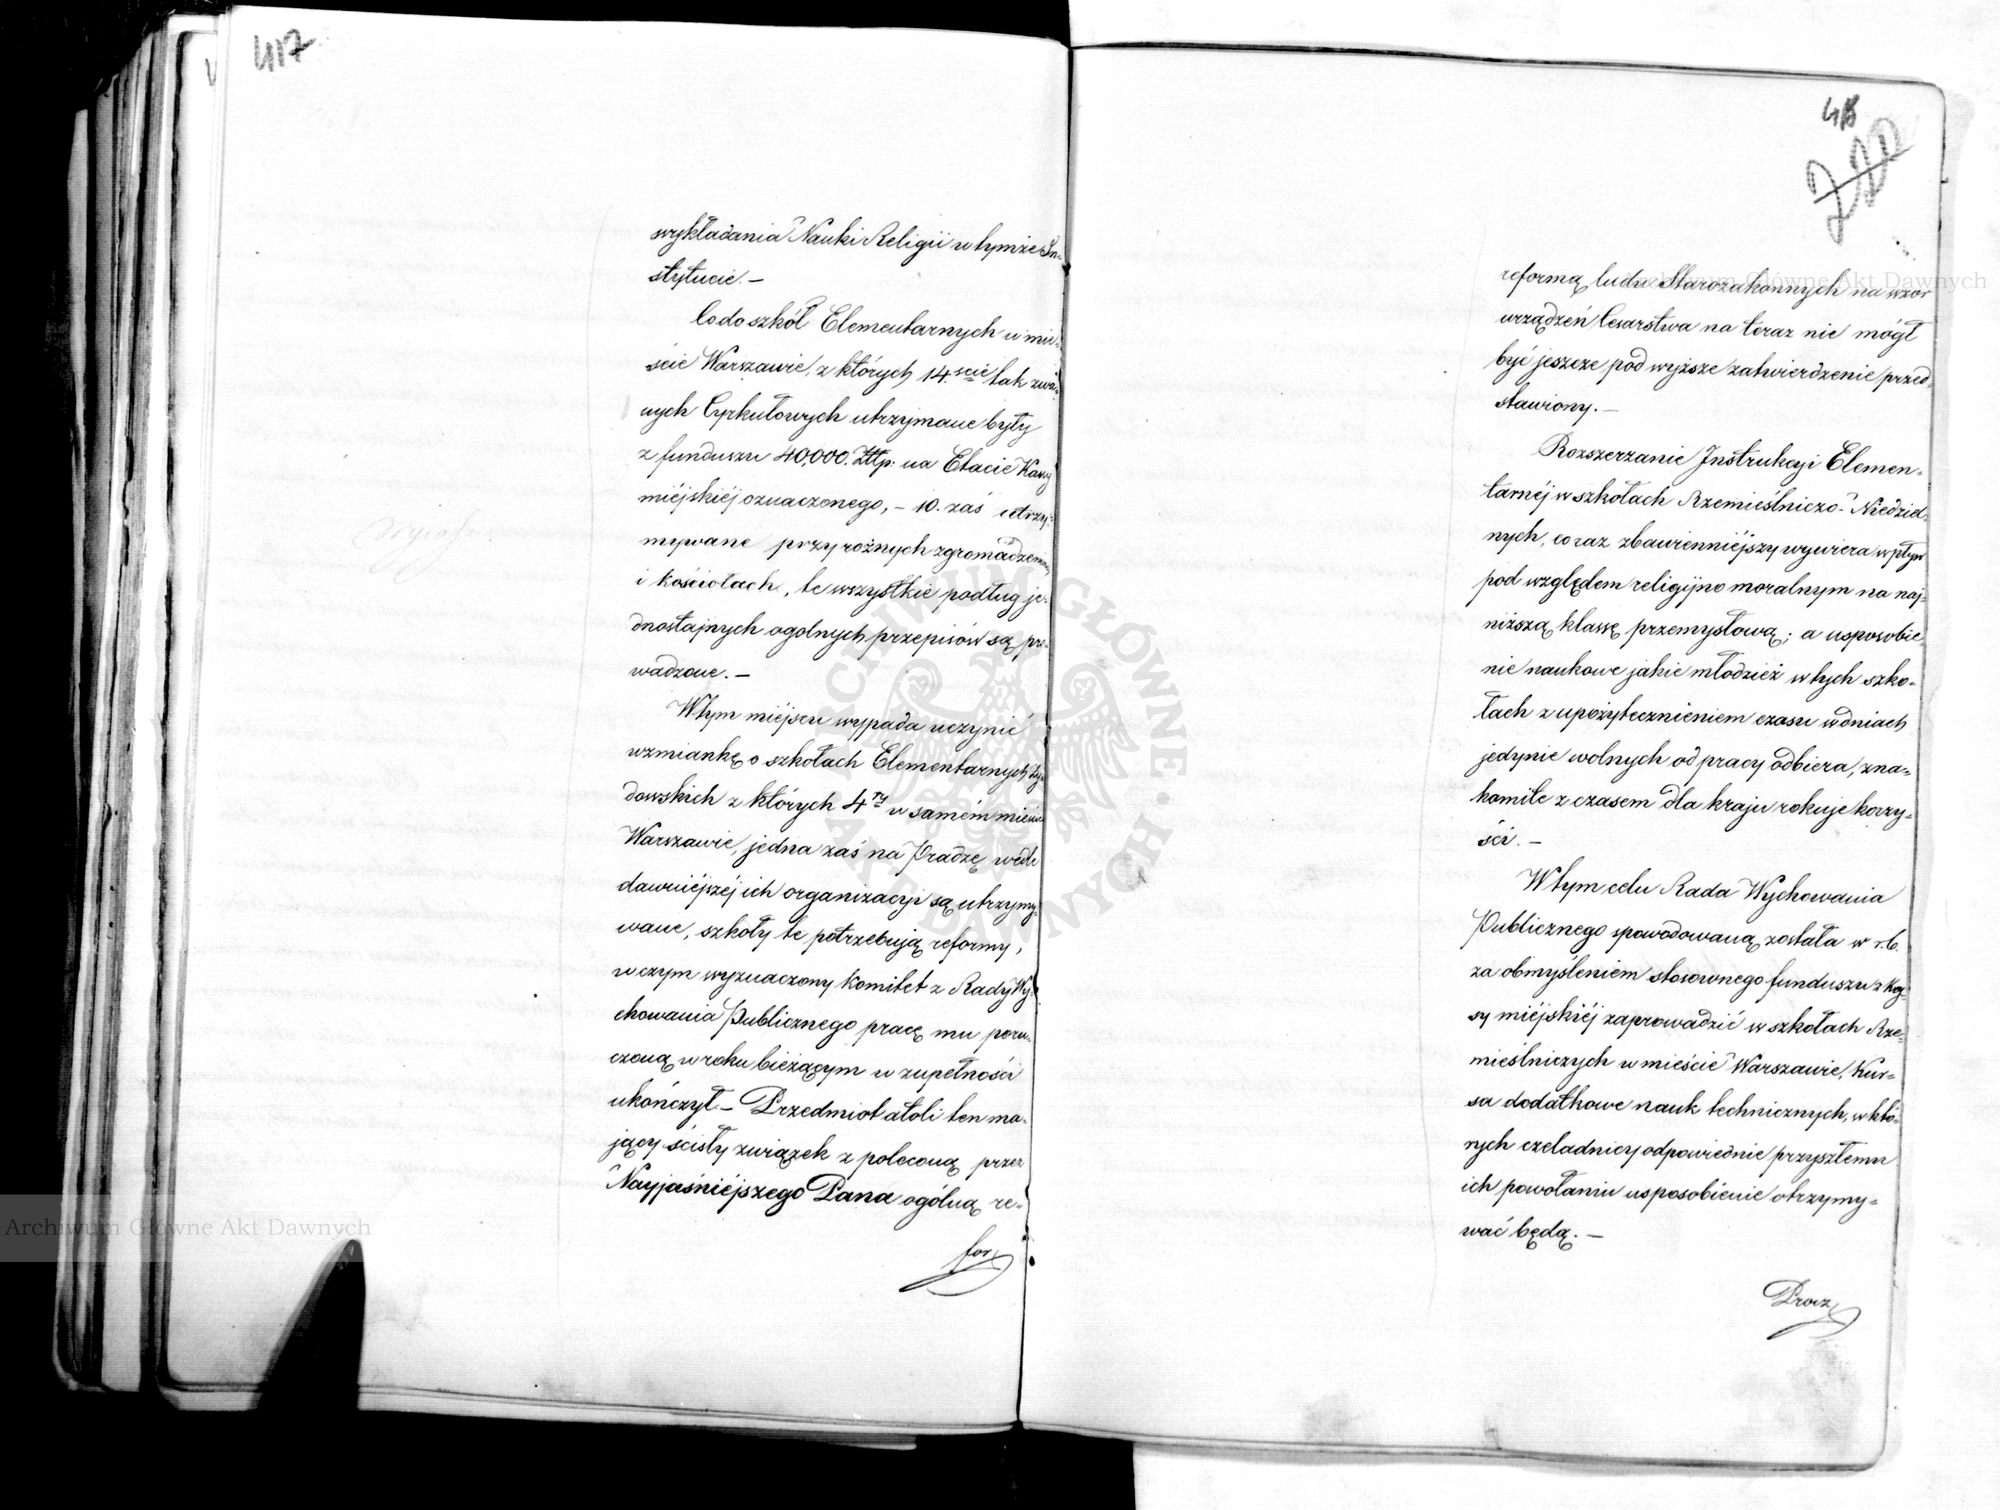 417
wykładania Nauki Religii w tymże In-
stytucie. –
Co do szkół Elementarnych w mie-
ście Warszawie, z których 14.ście tak zwa-
nych Cyrkułowych utrzymane były
z funduszu 40,000. Złtp: na Etacie Kassy
miéjskiéj oznaczonego, – 10. zaś utrzy-
mywane przy rożnych zgromadzeniach
i kościołach, te wszystkie podług je-
dnostajnych ogolnych przepisów są pro-
wadzone. –
W tym miéjscu wypada uczynić
wzmiankę o szkołach Elementarnych Ży-
dowskich z których 4ry w samém mieście
Warszawie, jedna zaś na Pradze wedle
dawniéjszéj ich organizacyi są utrzymy-
wane, szkoły te potrzebują reformy,
w czym wyznaczony Komitet z Rady Wy-
chowania Publicznego pracę mu poru-
czoną w roku bieżącym w zupełności
ukończył – Przedmiot atoli ten ma-
jący ścisły związek z poleconą przez
Nayjaśniejszego Pana ogólną re-
for
418
220
reformą ludu Starozakonnych na wzor
urządzeń Cesarstwa na teraz nie mógł
być jeszcze pod wyższe zatwierdzenie przed-
stawiony. –
Rozszerzanie Instrukcyi Elemen-
tarnéj w szkołach Rzemieślniczo-Niedziel-
nych, coraz zbawienniéjszy wywiera wpływ
pod względem religijno moralnym na naj-
niższą klassę przemysłową; a usposobie-
nie naukowe jakie młodzież w tych szko-
łach z upożytecznieniem czasu w dniach
jedynie wolnych od pracy odbiera, zna-
komite z czasem dla kraju rokuje korzy-
ści. –
W tym celu Rada Wychowania
Publicznego spowodowaną została w r.b.
za obmyśleniem stosownego funduszu z Kas-
sy miéjskiéj zaprowadzić w szkołach Rze-
mieślniczych w mieście Warszawie, Kur-
sa dodatkowe nauk technicznych, w któ-
rych czeladnicy odpowiednie przyszłemu
ich powołaniu usposobienie otrzymy-
wać będą. –
Procz
Archiwum Główne Akt Dawnych
Archiwum Główne Akt Dawnych
ARCHIWUM GŁÓWNE AKT DAWNYCH